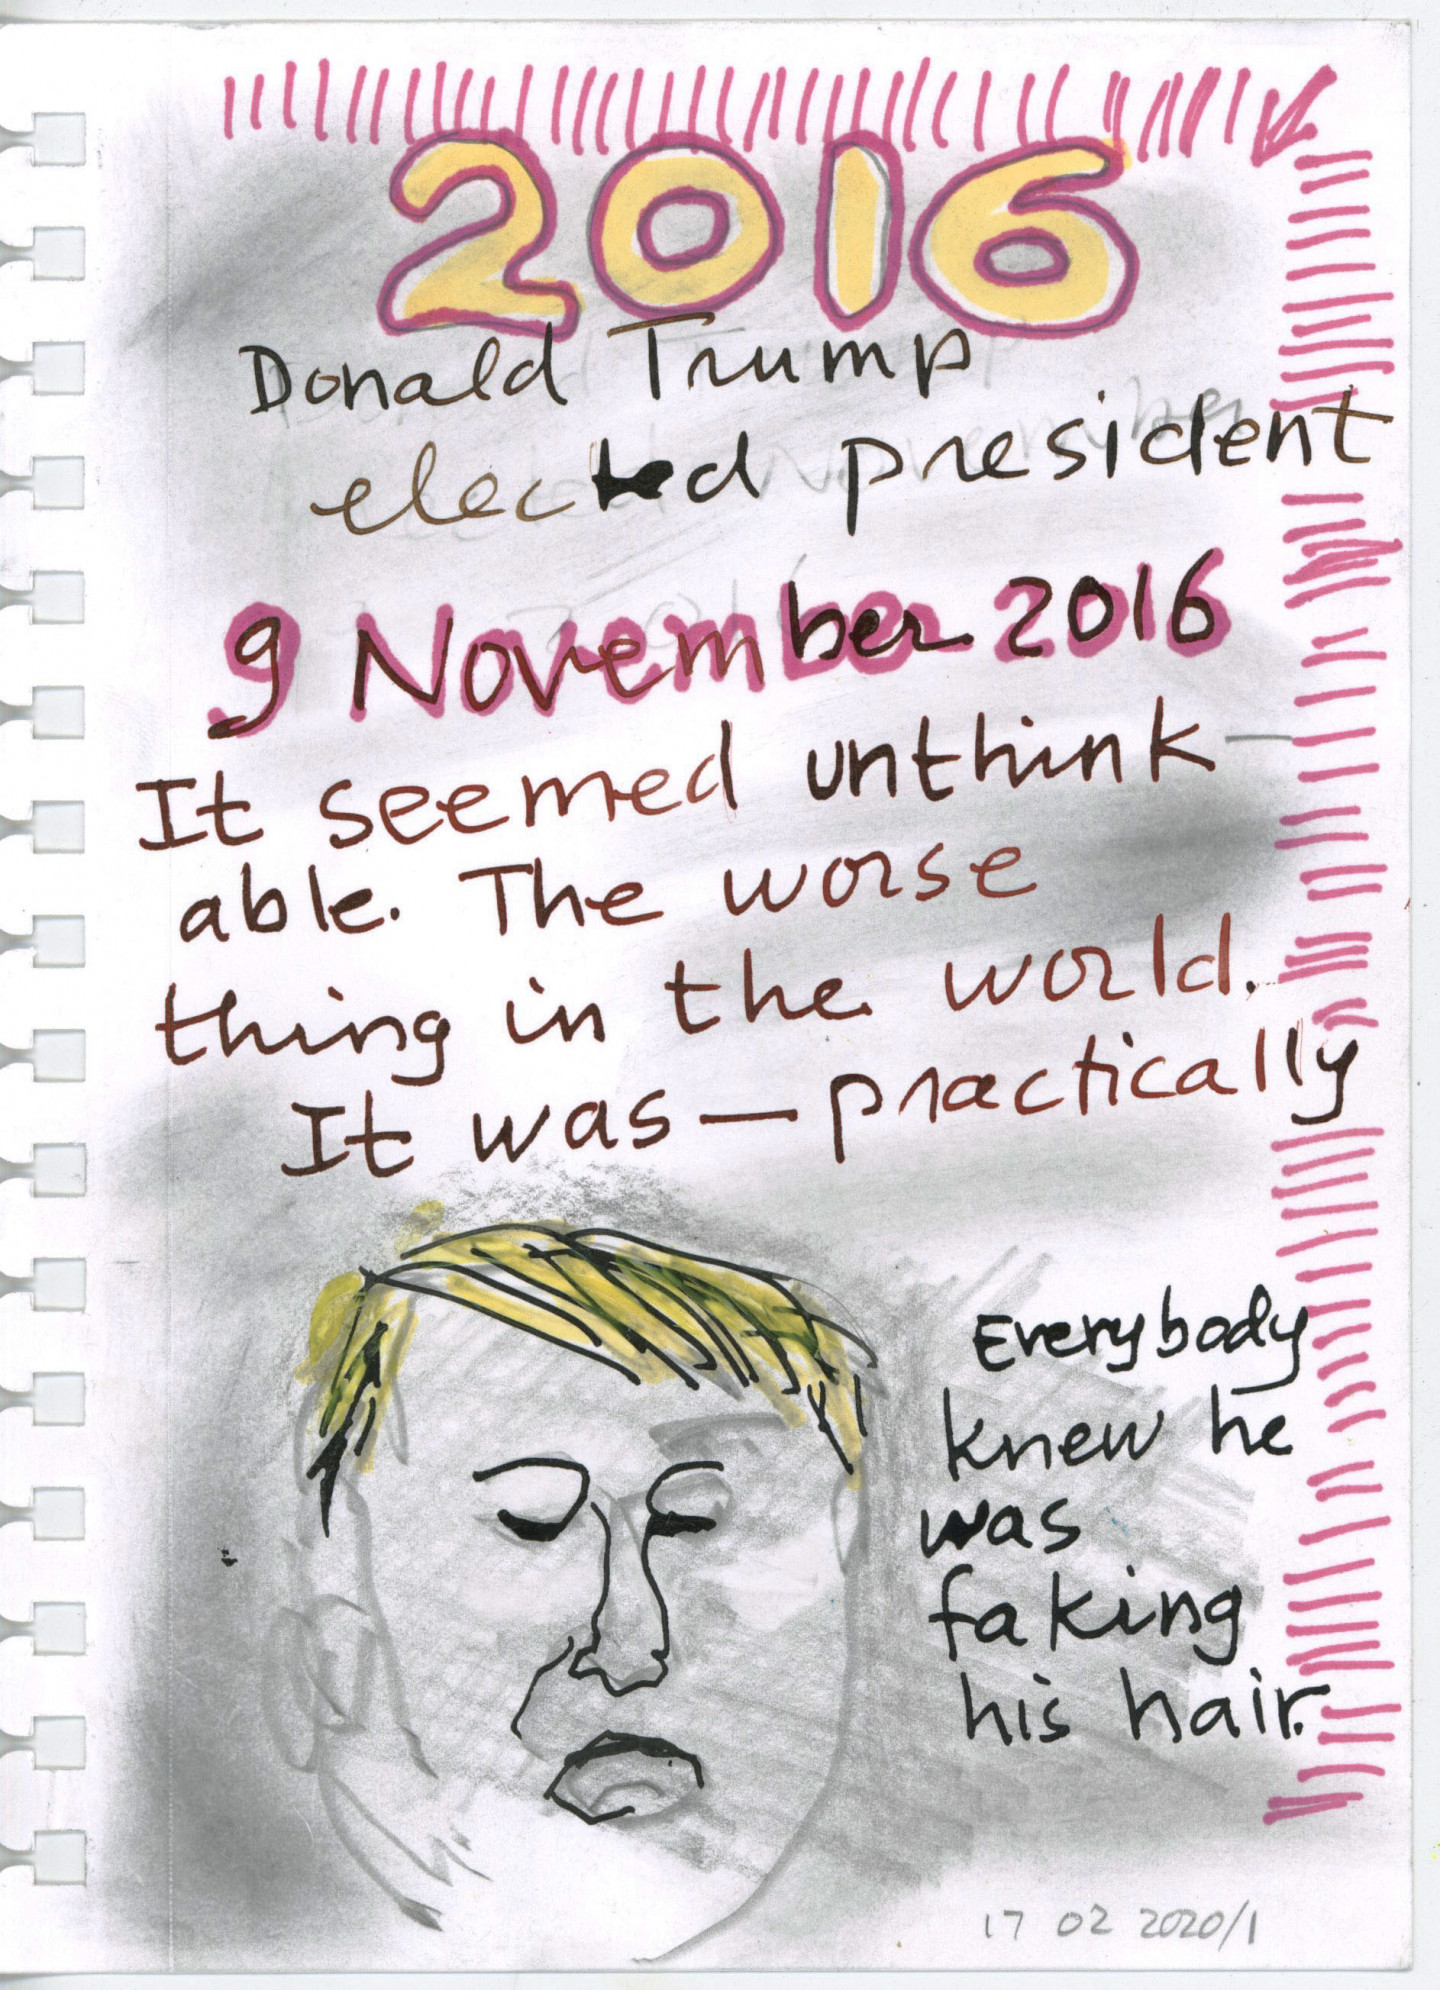 2016
Donald Trump
elected president
9 November 2016
It seemed unthink-
able. The worse
thing in the world.
It was — practically
Everybody
knew he
was
faking
his hair.
17 02 2020/1